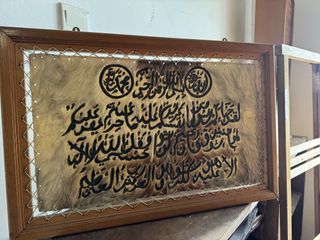 بسم الله الرحمن الرحيم
لقد جاءكم رسول من انفسكم عزيز عليه
ما عنتم حريص عليكم بالمؤمنين رؤوف رحيم فان تولوا فقل حسبي الله لا اله
الا هو عليه توكلت وهو رب العرش العظيم